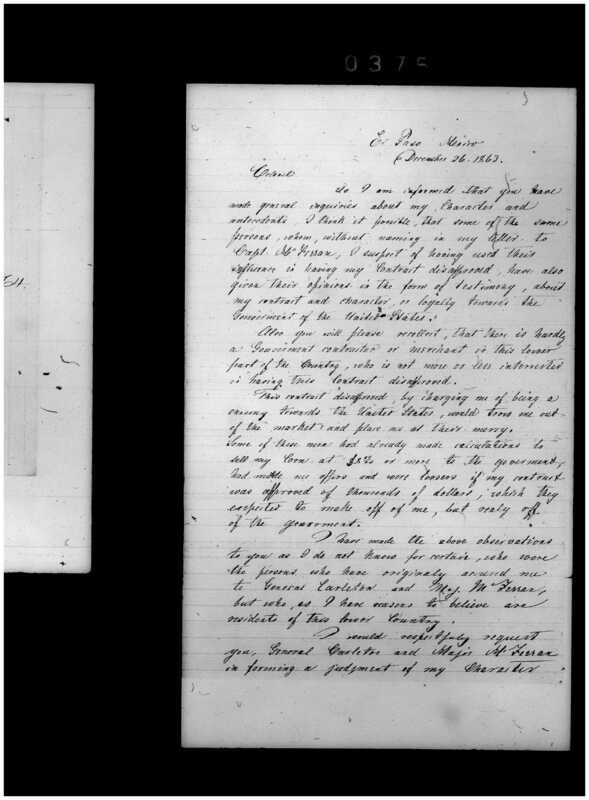 0375
El Paso Mexico
December 26. 1863.
Colonel
As I am informed that you have
made general inquiries about my Character and
antecedents, I think it possible, that some of the same
persons, whom, without naming in my letter to
Capt. McFerran, I suspect of having used their
influence in having my Contract disapproved, have also
given their opinions in the form of testimony, about
my contract and character, or loyalty towards the
Government of the United States.
Also you will please recollect, that there is hardly
a Government contractor or merchant in this lower
part of the Country, who is not more or less interested
in having this Contract disapproved.
This contract disapproved, by charging me of being a
enemy towards the United States, would throw me out
of the market and place me at their mercy.
Some of these men had already made calculations to
sell my Corn at or more to the goverment,
had made me offers and were loosers if my contract
was approved of thousands of dollars, which they
expected to make off of me, but realy off
of the government.
I have made the above observations
to you as I do not know for certain, who were
the persons who have originaly accused me
to General Carleton and Maj. McFerran,
but who, as I have reasons to believe are
residents of this lower Country.
I would respectfuly request
you, General Carleton and Major McFerran
in forming a judgment of my Character